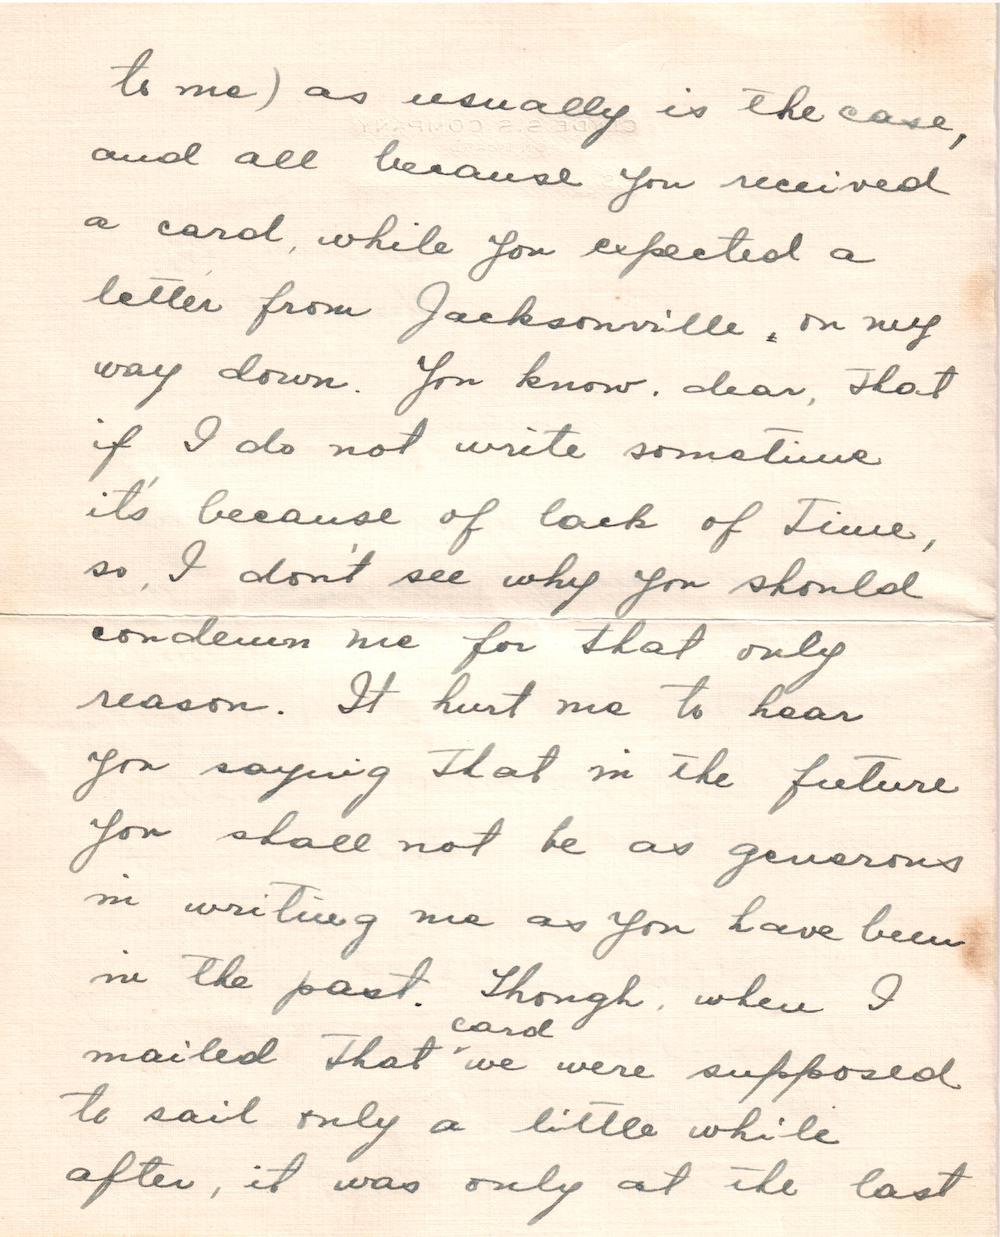 to me) as usually is the case,
and all because you received
a card, while you expected a
letter from Jacksonville, on my
way down. You know, dear, that
if I do not write sometime
it's because of lack of time,
so, I don't see why you should
condemn me for that only
reason. It hurt me to hear
you saying that in the future
you shall not be as generous
in writing me as you have been
in the past. Though, when I
card
mailed that we were supposed
to sail only a little while
after, it was only at the last